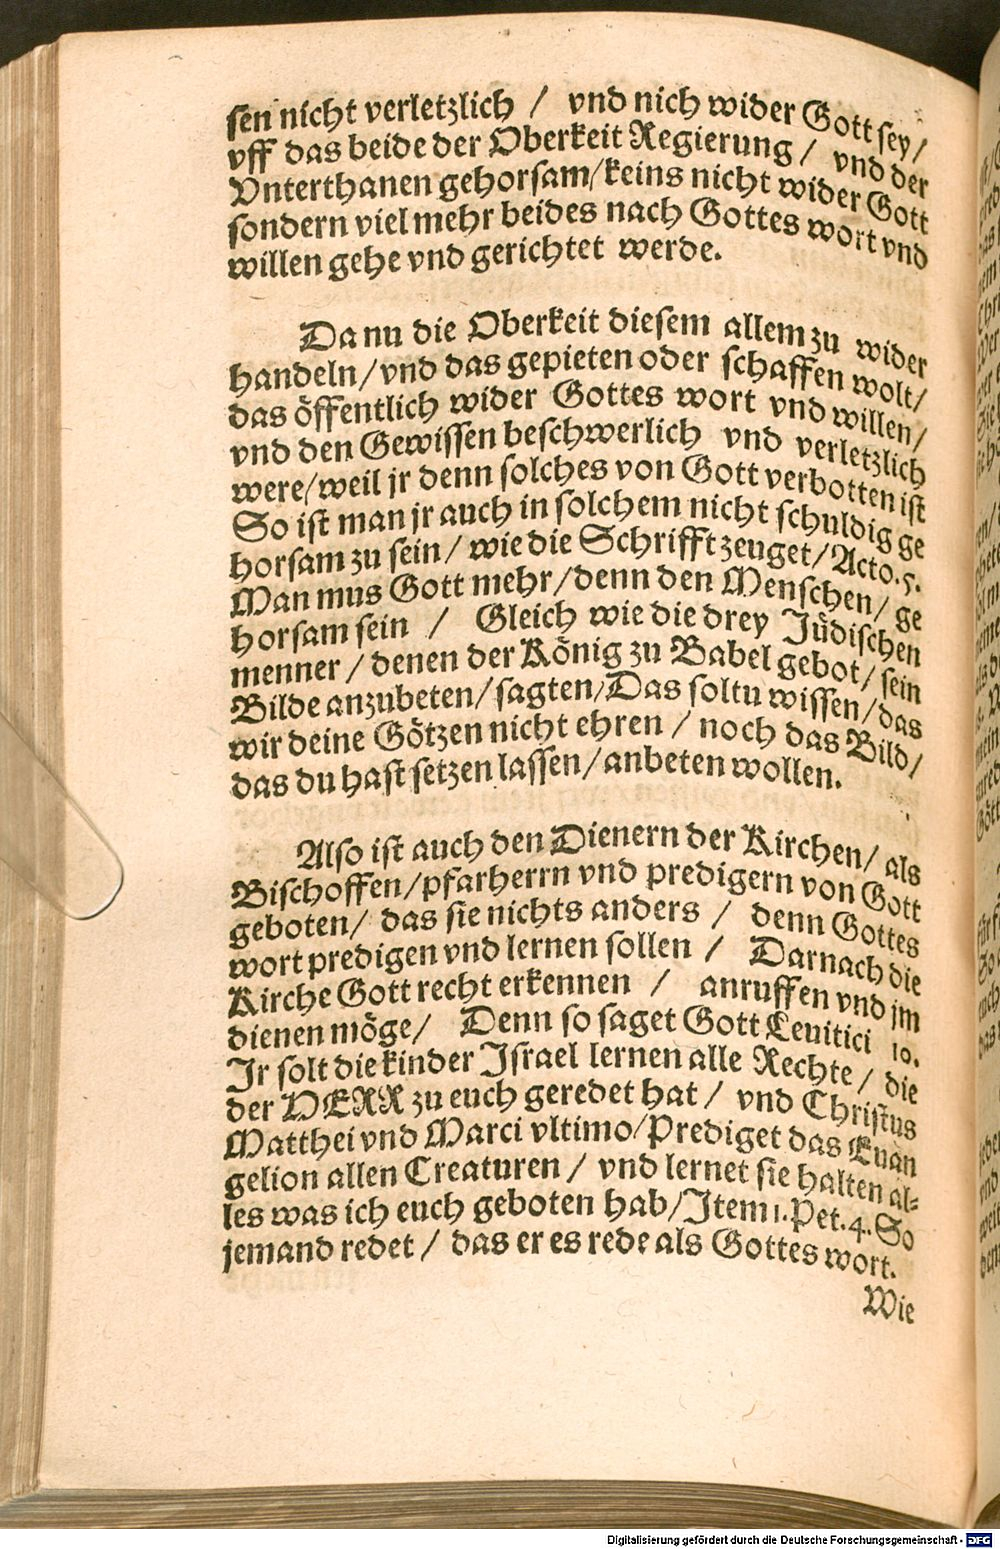 sen nicht verletzlich / vnd nich wider Gott sey /
vff das beide der Oberkeit Regierung / vnd der
Vnterthanen gehorsam/keins nicht wider Gott
sondern viel mehr beides nach Gottes wort vnd
willen gehe vnd gerichtet werde.
Da nu die Oberkeit diesem allem zu wider
handeln/vnd das gepieten oder schaffen wolt/
das öffentlich wider Gottes wort vnd willen/
vnd den Gewissen beschwerlich vnd verletzlich
were/weil jr denn solches von Gott verbotten ist
So ist man jr auch in solchem nicht schuldig ge
horsam zu sein/ wie die Schrifft zeuget/Acto.5.
Man mus Gott mehr/denn den Menschen/ ge
horsam sein / Gleich wie die drey Jüdischen
menner / denen der König zu Babel gebot/ sein
Bilde anzubeten/sagten/Das soltu wissen/das
wir deine Götzen nicht ehren / noch das Bild/
das du hast setzen lassen/anbeten wollen.
Also ist auch den Dienern der Kirchen/ als
Bischoffen/pfarherrn vnd predigern von Gott
geboten/ das sie nichts anders / denn Gottes
wort predigen vnd lernen sollen / Darnach die
Kirche Gott recht erkennen / anruffen vnd jm
dienen möge/ Denn so saget Gott Leuitici 10.
Ir solt die kinder Israel lernen alle Rechte / die
der HERR zu euch geredet hat / vnd Christus
Matthei vnd Marci vltimo/Prediget das Euan
gelion allen Creaturen / vnd lernet sie halten al-
les was ich euch geboten hab/Item 1. Pet. 4. So
jemand redet / das er es rede als Gottes wort.
Wie
Digitalisierung gefördert durch die Deutsche Forschungsgemeinschaft - DFG